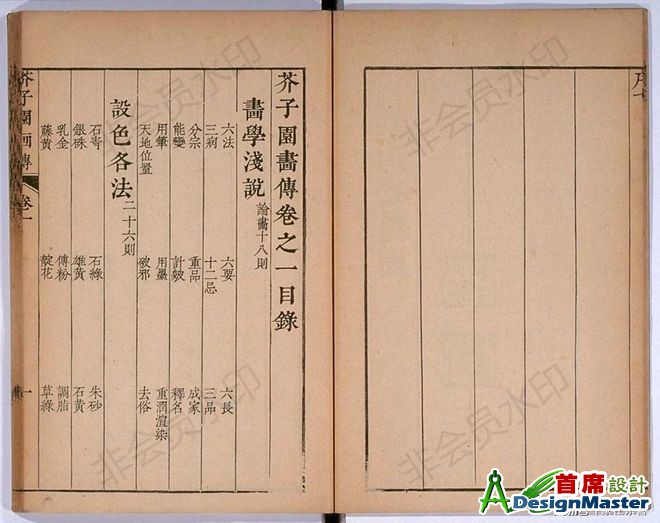 芥子園畫傳卷之一目錄
畫學淺說 論畫十八則
六法 六要 六長
三病 十二忌 三品
分宗 重品 成家
能變 計皴 釋名
用筆 用墨 重潤渲染
天地位置 破邪 去俗
設色各法 二十六則
石青 石綠 朱砂
銀硃 雄黃 石黃
乳金 傅粉 調脂
藤黃 靛花 草綠
芥子園畫傳 卷一 一
非会员水印
非会员水印
非会员水印
非会员水印
首席設計
DesignMaster